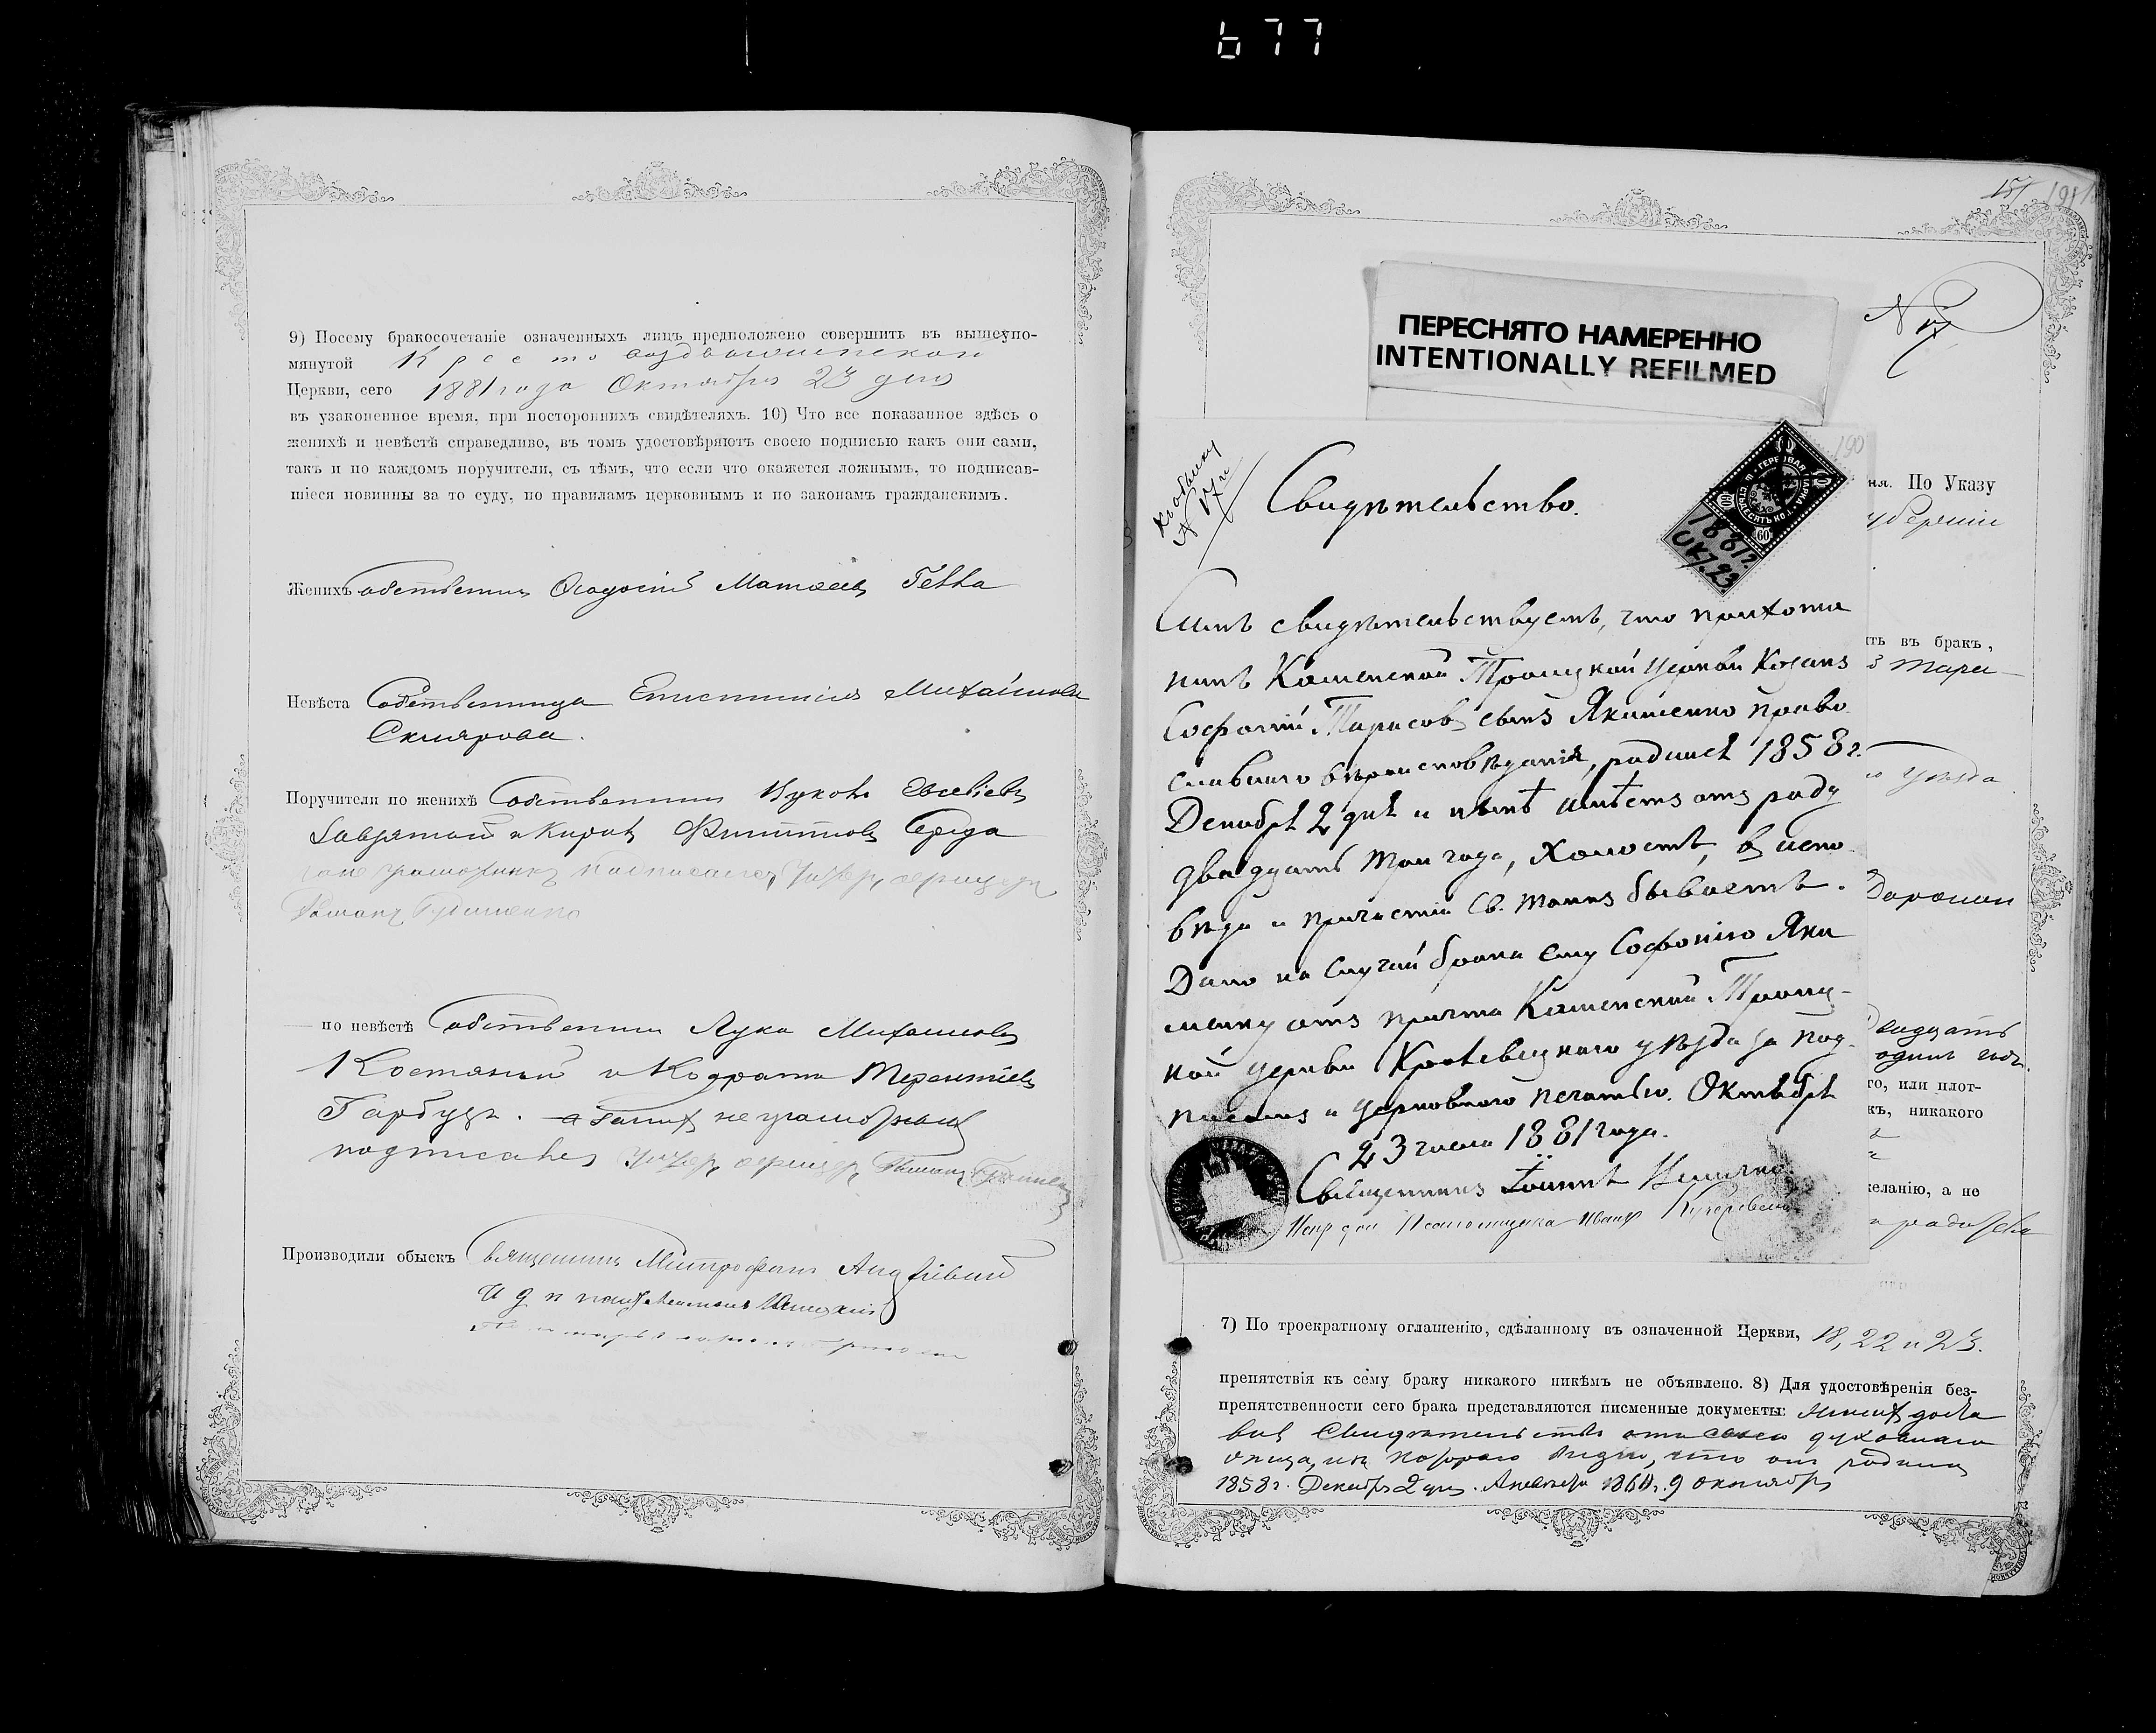 677
9) Посему бракосочетаніе означенныхъ лицъ предположено совершить въ вышеупо-
мянутой Кресто воздвиженской
Церкви, сего 1881 года Октября 23 дня
въ узаконенное время, при постороннихъ свидѣтеляхъ. 10) Что все показанное здѣсь о
женихѣ и невѣстѣ справедливо, въ томъ удостовѣряютъ своею подписью какъ они сами,
такъ и по каждомъ поручители, съ тѣмъ, что если что окажется ложнымъ, то подписав-
шіеся повинны за то суду, по правиламъ церковнымъ и по законамъ гражданскимъ.
Женихъ Собственникъ Ѳеодосій Матѳеевъ
Невѣста Собственница Епистимія Михайлова
Склярова.
Поручители по женихѣ Собственники
и Кирилъ Филипповъ Середа
унтеръ офицеръ
Романъ
— по невѣстѣ Собственники Лука Михайловъ
и Кодратъ Терентіевъ
Гарбузъ. неграмотныхъ
подписался унтеръ офицеръ Романъ
Производили обыскъ Священникъ Митрофанъ
И д п
151 191
ПЕРЕСНЯТО НАМЕРЕННО
INTENTIONALLY REFILMED
N 17
Къ обыску
N 17
190
Свидѣтельство.
ГЕРБОВАЯ МАРКА
60
1881 г.
Окт. 23
ня. По Указу
губерніи
Симъ свидѣтельствуемъ, что прихожа
нинъ Каменской Троицкой Церкви Козакъ
Софоній Тарасовъ сынъ Якименко право
славнаго вѣроисповѣданія, родился 1858 г.
Декабря 2 дня и нынѣ имѣетъ отъ роду
двадцать три года, холостъ, въ испо
вѣди и причастіи Св. Таинъ бываетъ.
Дано на случай брака ему Софонію Яки
менку отъ причта Каменской Троиц-
кой церкви Кролевецкаго уѣзда за под-
писомъ и церковною печатью. Октября
23 числа 1881 года.
Священникъ Іоаннъ
Псаломщика Иванъ
ть въ бракъ,
Тара
уѣзда
Двадцать
одинъ годъ.
го, или плот-
къ, никакого
желанію, а не
7) По троекратному оглашенію, сдѣланному въ означенной Церкви, 18, 22 и 23.
препятствія къ сему браку никакого никѣмъ не объявлено. 8) Для удостовѣренія без-
препятственности сего брака представляются писменные документы: Женихъ доста
вилъ Свидѣтельство отъ своего духовнаго
отца, изъ котораго видно, что онъ родился
1858 г. Декабря 2 дня. 9 октября